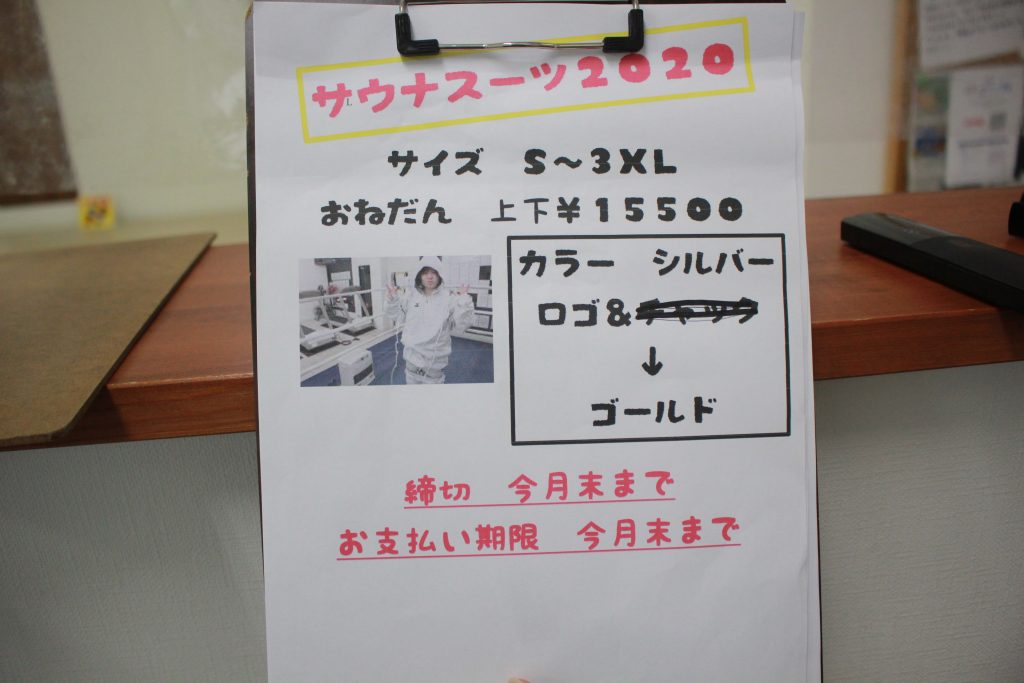 サウナスーツ2020
サイズ　S～3XL
おねだん　上下¥15500
カラー　シルバー
ロゴ&チャック
↓
ゴールド
締切　今月末まで
お支払い期限　今月末まで